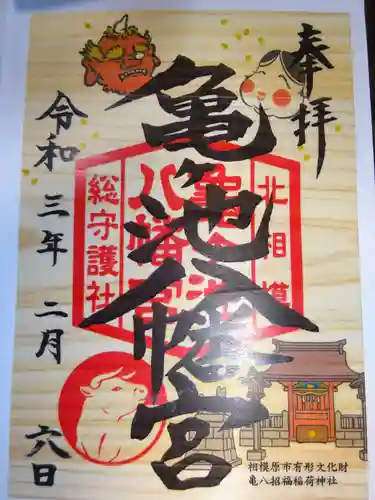 奉拝
亀ヶ池八幡宮
北相模
総守護社
令和三年二月六日
相模原市有形文化財
亀八招福稲荷神社